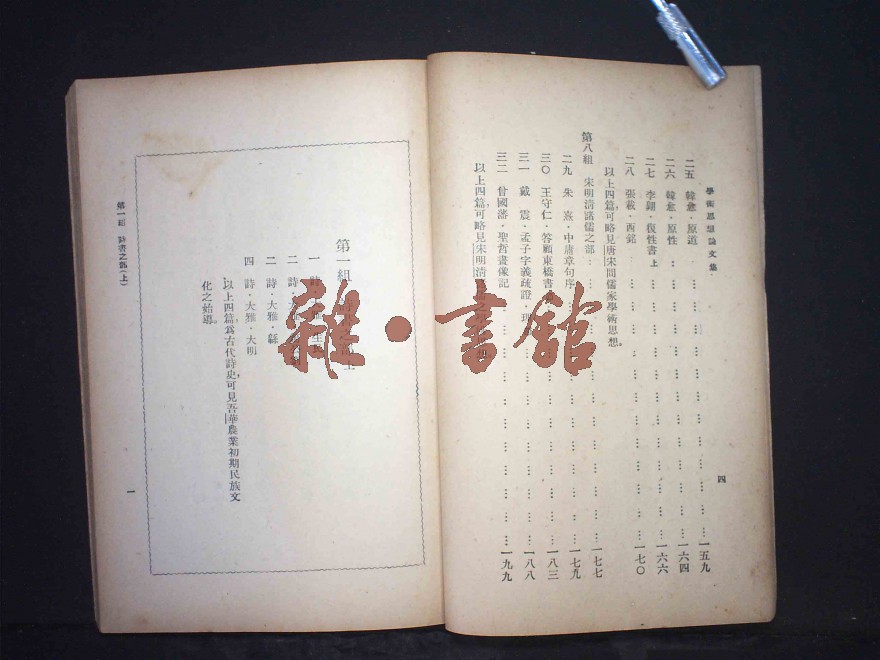 學術思想論文集
四
二五 韓愈·原道……一五九
二六 韓愈·原性……一六四
二七 李翺·復性書上……一六六
二八 張載·西銘……一七〇
以上四篇,可略見唐宋間儒家學術思想。
第八組 宋明清諸儒之部……一七七
二九 朱熹·中庸章句序……一七九
三〇 王守仁·答顧東橋書……一八三
三一 戴震·孟子字義疏證·理……一八八
三二 曾國藩·聖哲畫像記……一九九
以上四篇,可略見宋明清
第一組
一 詩·
二 詩·大雅
三 詩·大雅·緜
四 詩·大雅·大明
以上四篇,爲古代詩史,可見吾華農業初期民族文
化之始導。
第一組 詩書之部(上)
一
雜·書館